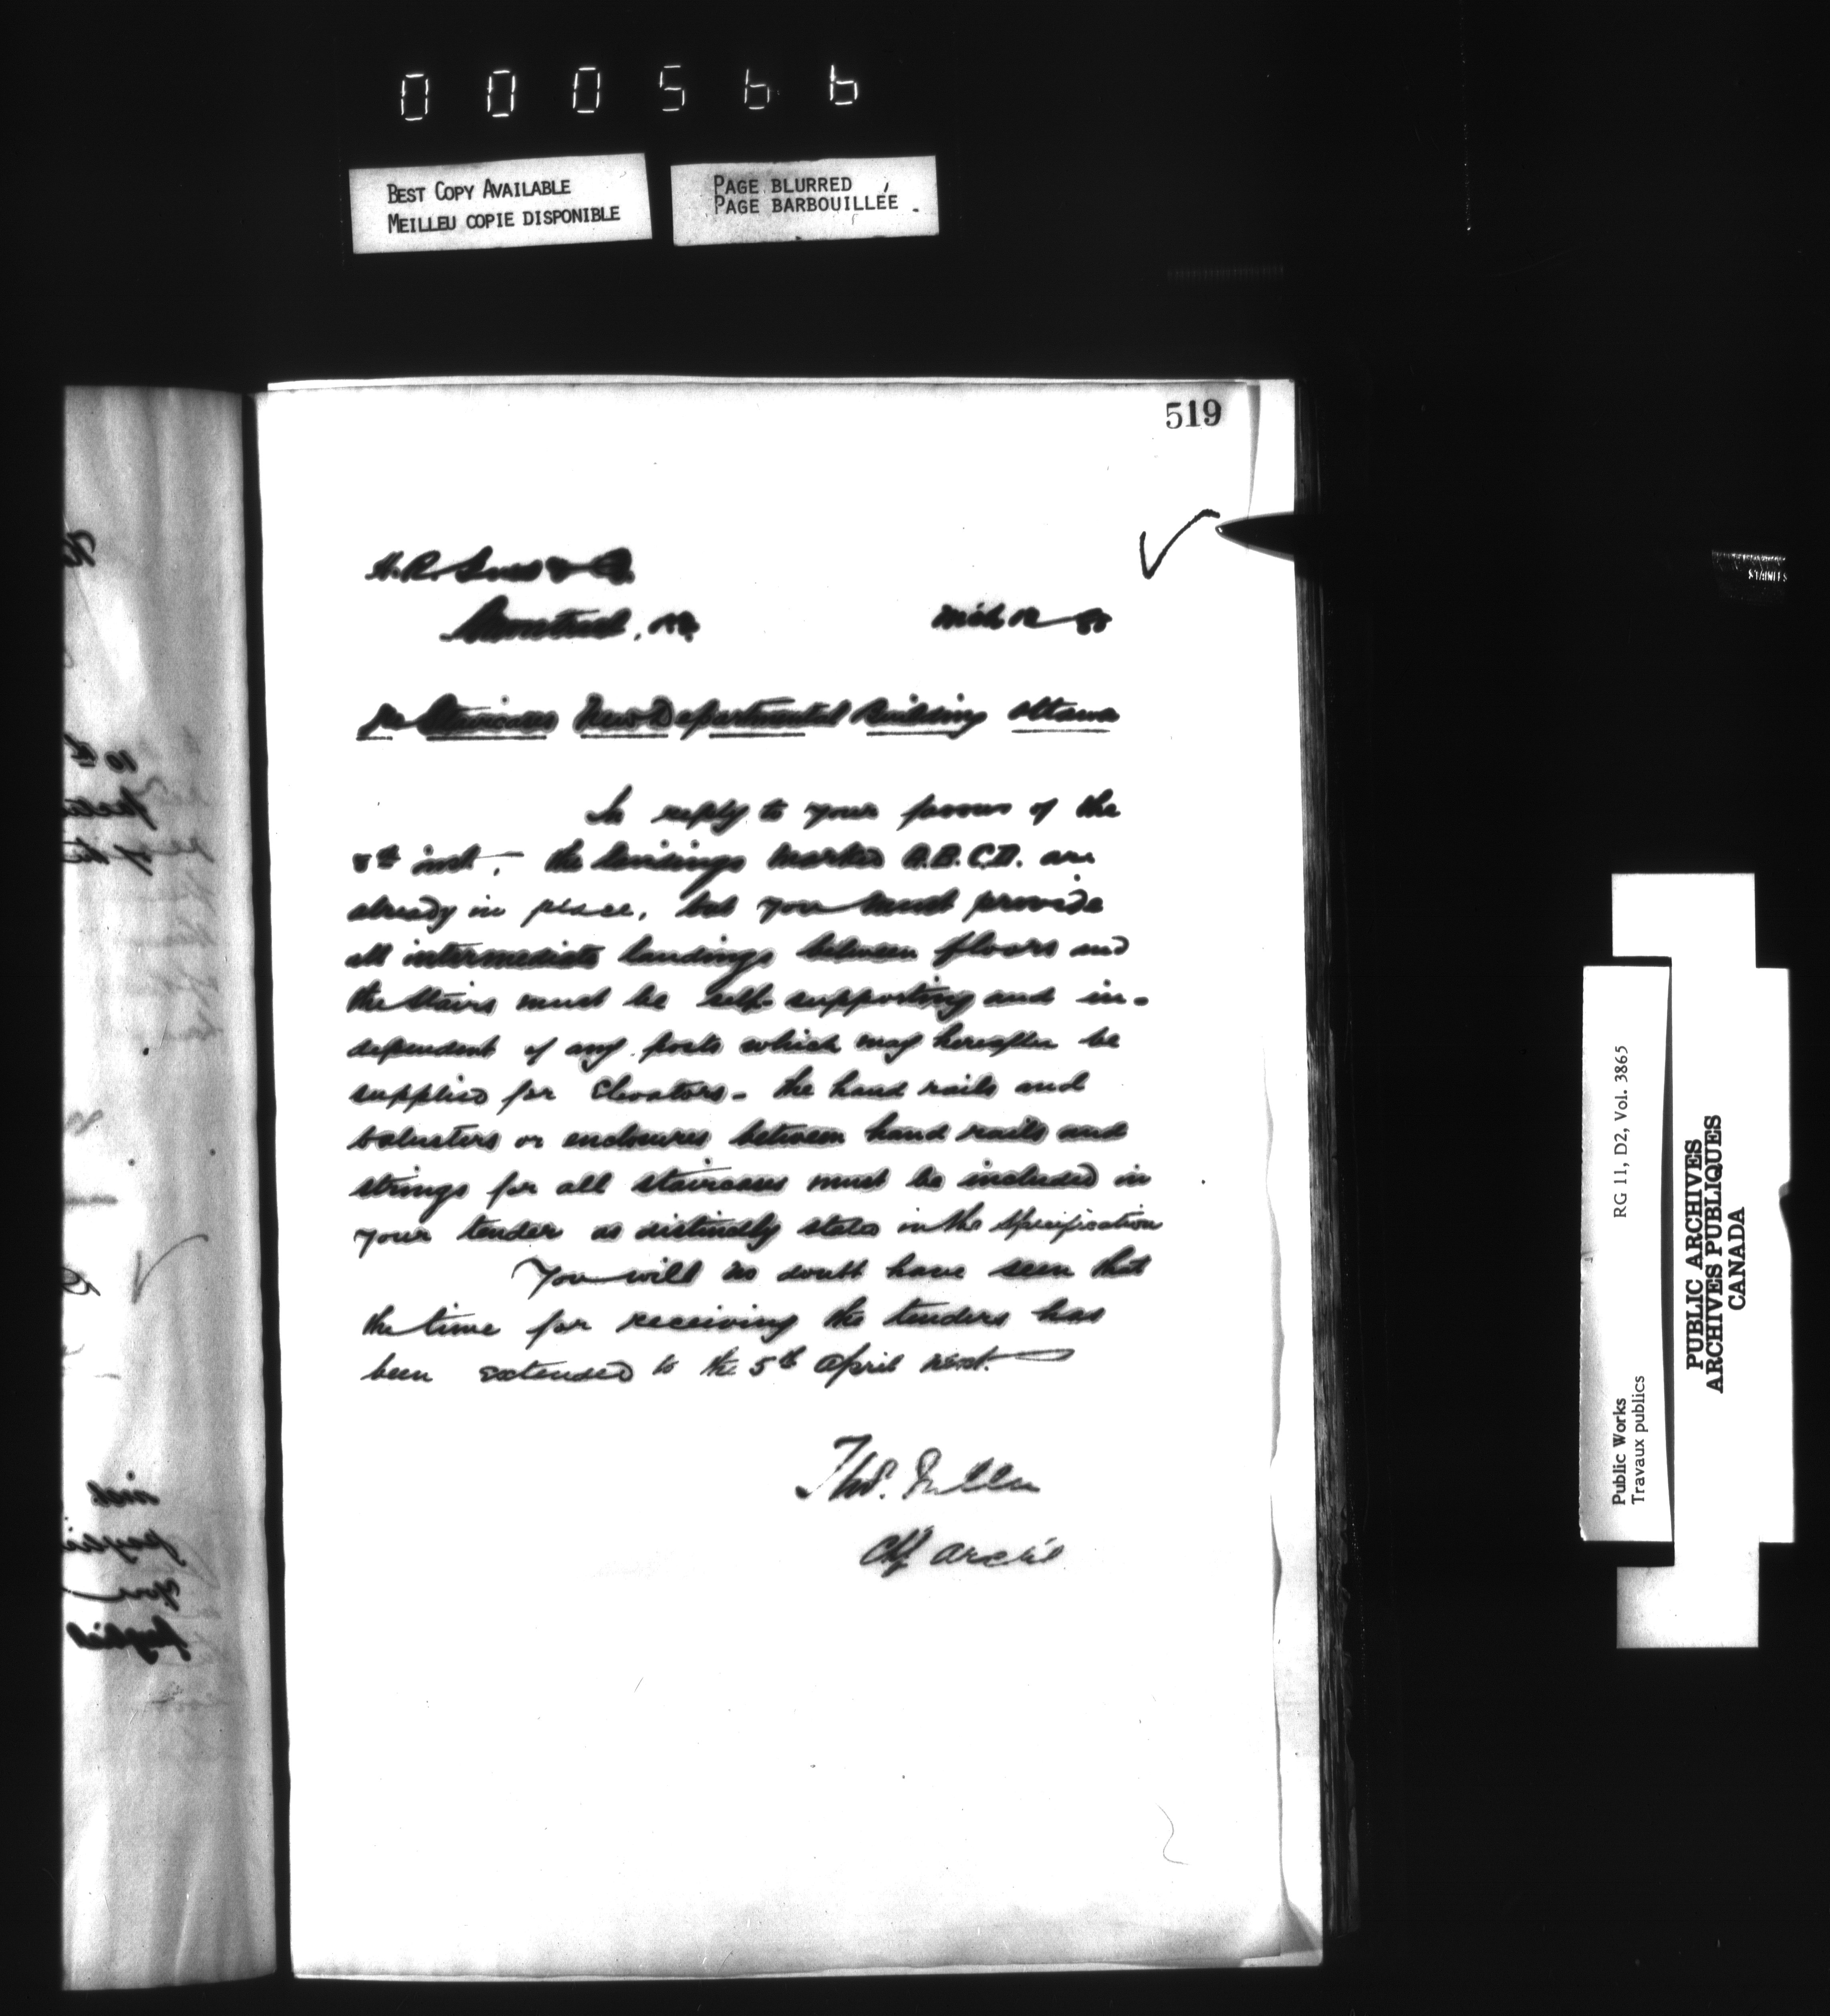 000566
BEST COPY AVAILABLE
MEILLEU COPIE DISPONIBLE
PAGE BLURRED
PAGE BARBOUILLÉE
519
H. R. Ives & Co
Montreal, P.Q.
Mch 12 88
re Staircases New Departmental Building Ottawa
In reply to your favour of the
8th inst, – the landings marked A.B.C.D. are
already in place, but you must provide
all intermediate landings between floors and
the stairs must be self-supporting and in-
dependent of any posts which may hereafter be
supplied for Elevators - The hand rails and
balusters or enclosures between hand rails and
strings for all staircases must be included in
your tender as distinctly stated in the Specification
You will no doubt have seen that
the time for receiving the tenders has
been extended to the 5th April next.
Thos. Fuller
Chf Archt
STAINLES
RG 11, D2, Vol. 3865
Public Works
Travaux publics
PUBLIC ARCHIVES
ARCHIVES PUBLIQUES
CANADA